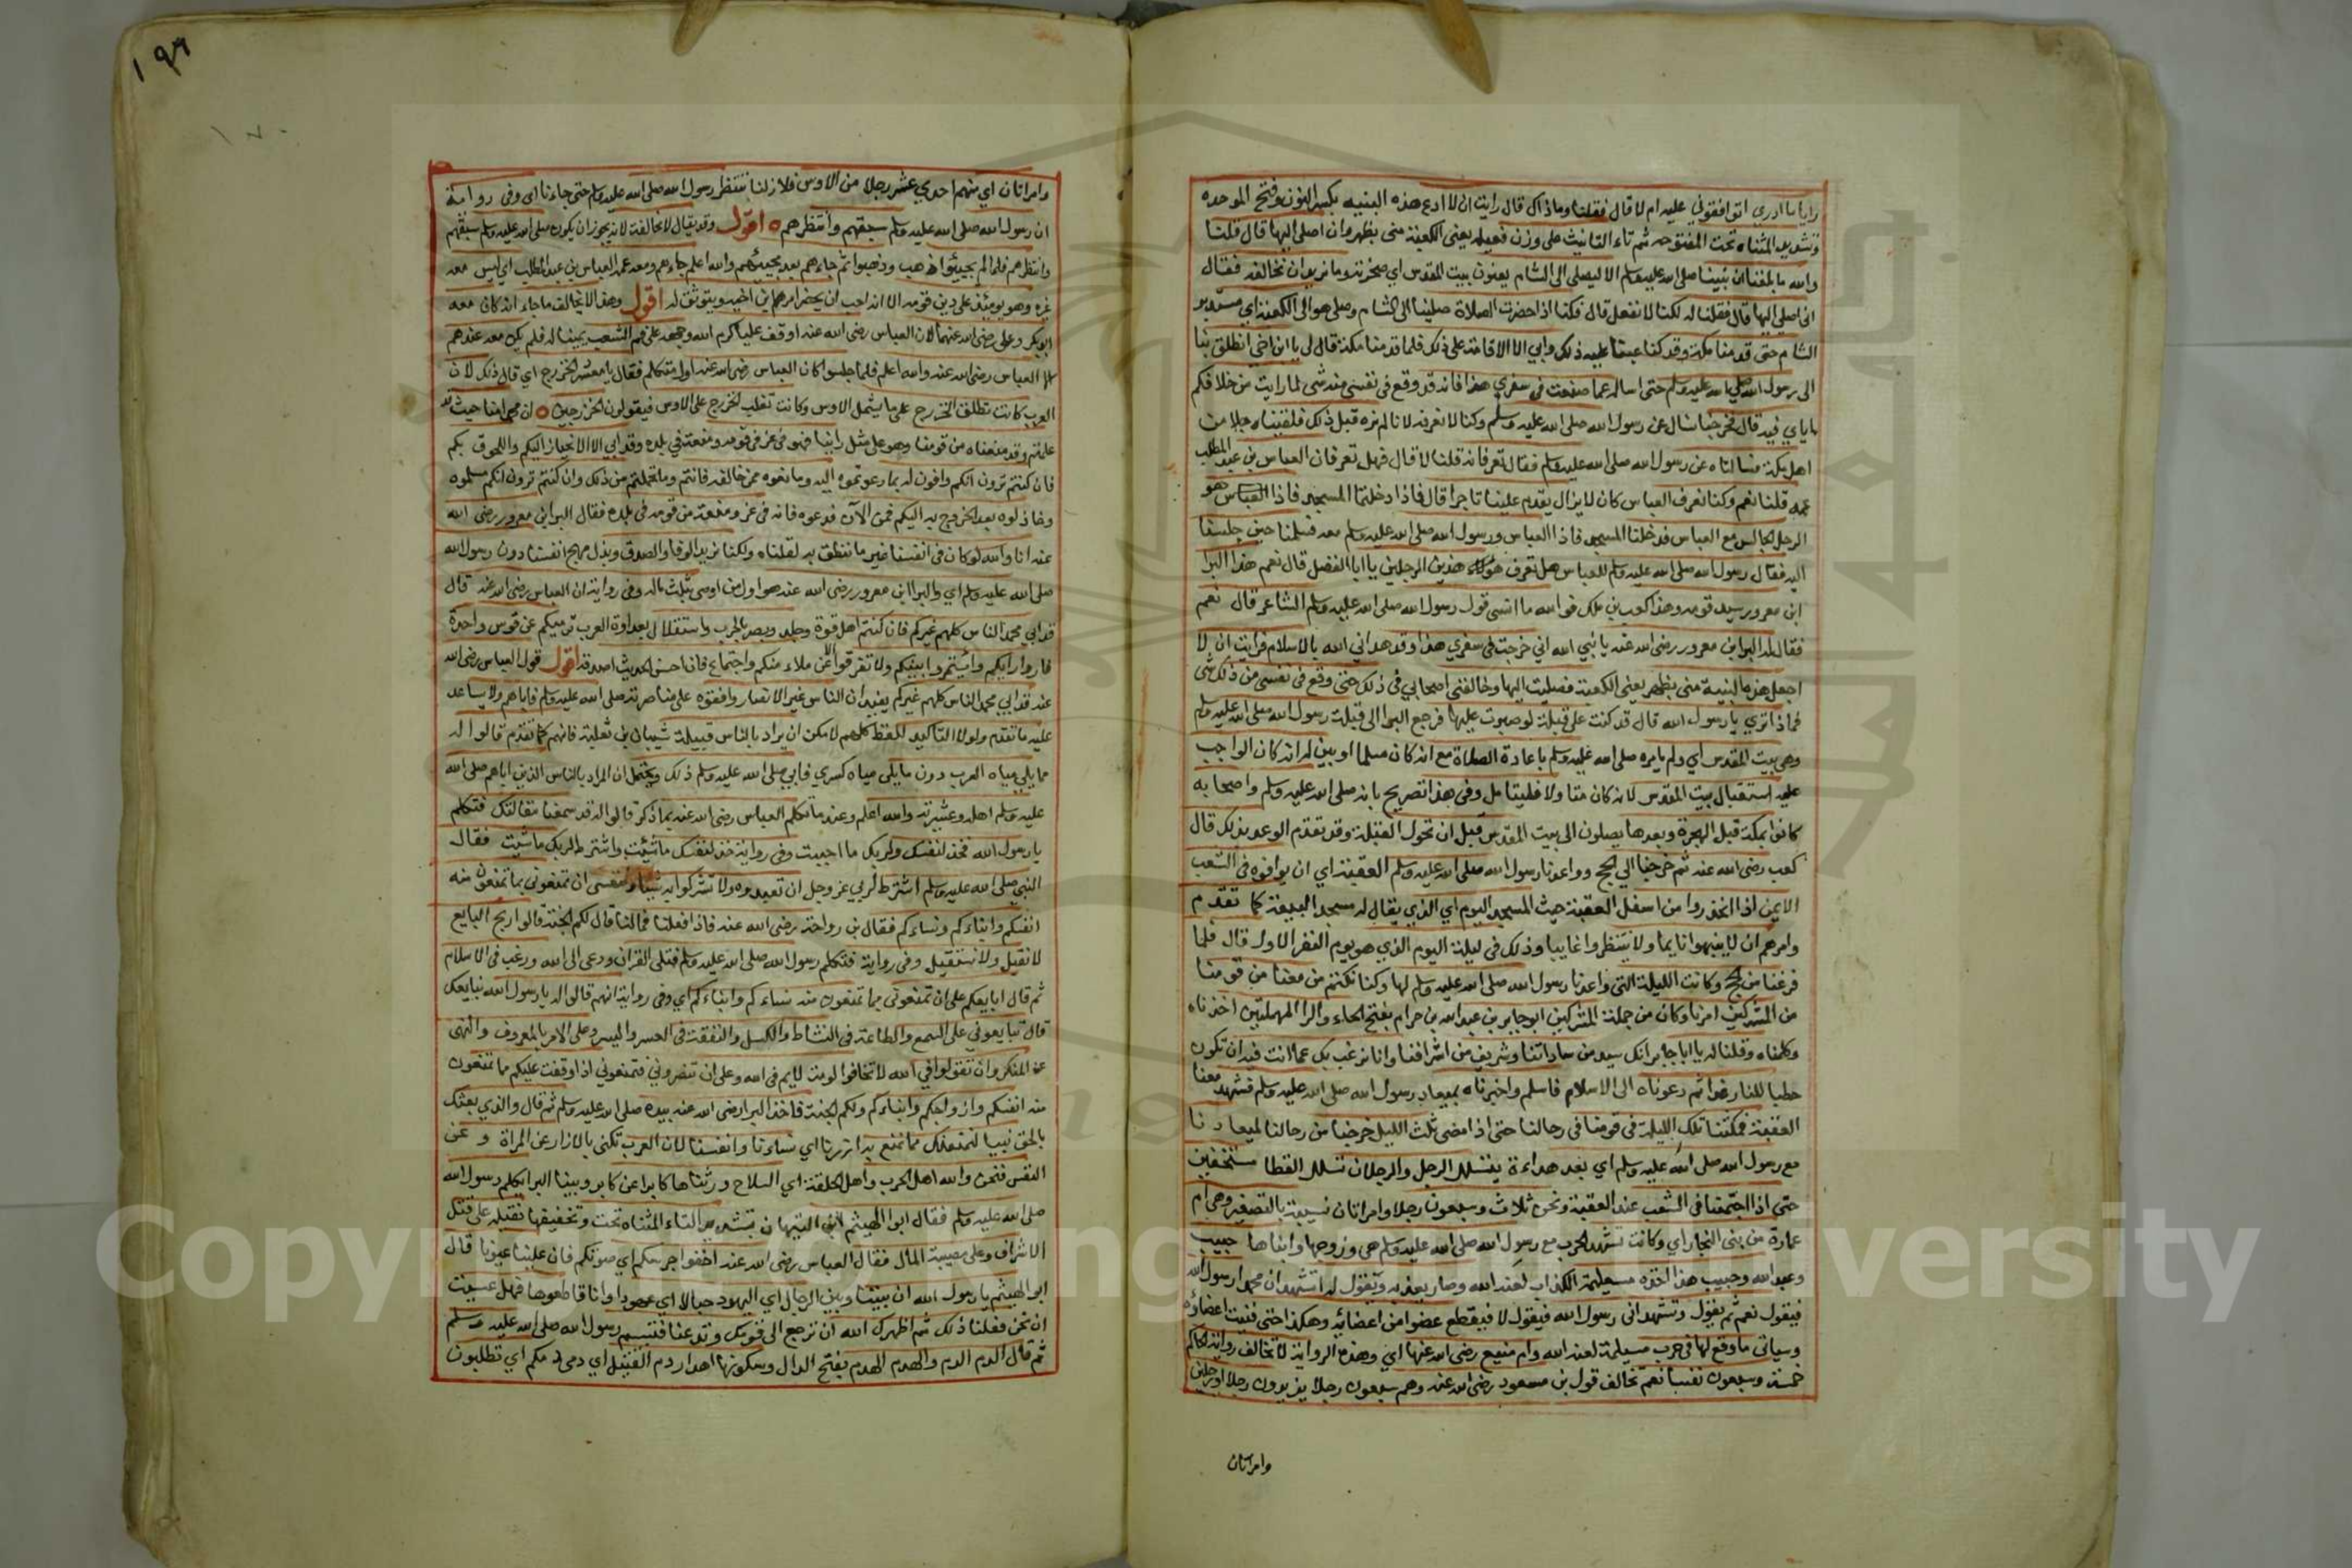 رايا ما ادري اتوافقوني عليه ام لا قال فقلنا وما ذاك قال رايت ان لا ادع هذه البنيه بكسر النون وفتح الموحده
وتشديد المثناه تحت المفتوحه ثم تاء التانيث على وزن فعيله يعني الكعبة مني بظهر وان اصلي اليها قال قلنا
والله ما بلغنا ان نبينا صلى الله عليه وسلم الا ليصلي الى الشام يعنون بيت المقدس اي صخرته وما نريد ان نخالفه فقال
اني اصلي اليها قال فقلنا له لكنا لا نفعل قال فكنا اذا حضرت الصلاة صلينا الى الشام وصلى هو الى الكعبة اي مستدبر
الشام حتى قدمنا مكة وقد كنا عبنا عليه ذلك وابى الا الاقامة على ذلك فلما قدمنا مكة قال لي يا ابن اخي انطلق بنا
الى رسول الله صلى الله عليه وسلم حتى اساله عما صنعت في سفري هذا فانه قد وقع في نفسي منه شي لما رايت من خلافكم
اياي فيه قال فخرجنا نسال عن رسول الله صلى الله عليه وسلم وكنا لا نعرفه لانا لم نره قبل ذلك فلقينا رجلا من
اهل مكة فسالناه عن رسول الله صلى الله عليه وسلم فقال تعرفانه قلنا لا قال فهل تعرفان العباس بن عبد المطلب
عمه قلنا نعم وكنا نعرف العباس كان لا يزال يقدم علينا تاجرا قال فاذا دخلتما المسجد فاذا العباس هو
الرجل الجالس مع العباس فدخلنا المسجد فاذا العباس ورسول الله صلى الله عليه وسلم معه فسلمنا حين جلسنا
اليه فقال رسول الله صلى الله عليه وسلم للعباس هل تعرف هذين الرجلين يا ابا الفضل قال نعم هذا البرا
ابن معرور سيد قومه وهذا كعب بن ملك فوالله ما انسى قول رسول الله صلى الله عليه وسلم الشاعر قال نعم
فقال له البرا بن معرور رضى الله عنه يا نبي الله اني خرجت في سفري هذا وقد هداني الله بالاسلام فرايت ان لا
اجعل هذه البنية مني بظهر يعني الكعبة فصليت اليها وخالفني اصحابي في ذلك حتى وقع في نفسي من ذلك شي
فماذا ترى يا رسول الله قال قد كنت على قبلة لو صبرت عليها فرجع البرا الى قبلة رسول الله صلى الله عليه وسلم
وهي بيت المقدس اي ولم يامره صلى الله عليه وسلم باعادة الصلاة مع انه كان مسلما او بين له انه كان الواجب
عليه استقبال بيت المقدس لانه كان متاولا فليتامل وفي هذا تصريح بانه صلى الله عليه وسلم واصحابه
كانوا بمكة قبل الهجرة وبعدها يصلون الى بيت المقدس قبل ان تحول القبلة وقد تقدم الوعد بذلك قال
كعب رضى الله عنه ثم خرجنا الى الحج وواعدنا رسول الله صلى الله عليه وسلم العقبة اي ان يوافوه في الشعب
الايمن اذا انحدروا من اسفل العقبة حيث المسجد اليوم اي الذي يقال له مسجد البيعة كما تقدم
وامرهم ان لا ينبهوا نايما ولا ينتظروا غايبا وذلك في ليلة اليوم الذي هو يوم النفر الاول قال فلما
فرغنا من الحج وكانت الليلة التي واعدنا رسول الله صلى الله عليه وسلم لها وكنا نكتم من معنا من قومنا
من المشركين امرنا وكان من جملة المشركين ابو جابر بن عبد الله بن حرام بفتح الحاء والرا المهملتين اخذناه
وكلمناه وقلنا له يا ابا جابر انك سيد من ساداتنا وشريف من اشرافنا وانا نرغب بك عما انت فيه ان تكون
حطبا للنار غدا ثم دعوناه الى الاسلام فاسلم واخبرناه بميعاد رسول الله صلى الله عليه وسلم فشهد معنا
العقبة فمكثنا تلك الليلة في قومنا في رحالنا حتى اذا مضى ثلث الليل خرجنا من رحالنا لميعادنا
مع رسول الله صلى الله عليه وسلم اي بعد هداءة يتسلل الرجل والرجلان تسلل القطا مستخفين
حتى اذا اجتمعنا في الشعب عند العقبة ونحن ثلاث وسبعون رجلا وامراتان نسيبة بالتصغير وهي ام
عمارة من بني النجار اي وكانت تشهد الحرب مع رسول الله صلى الله عليه وسلم هي وزوجها وابناها حبيب
وعبد الله وحبيب هذا اخذه مسيلمة الكذاب لعنه الله وصار يعذبه ويقول له اتشهد ان محمدا رسول الله
فيقول نعم ثم يقول وتشهد اني رسول الله فيقول لا فيقطع عضوا من اعضائه وهكذا حتى فنيت اعضاؤه
وسياتي ما وقع لها في حرب مسيلمة لعنه الله وام منيع رضى الله عنها اي وهذه الرواية لا تخالف رواية الحاكم
خمسة وسبعون نفسا نعم تخالف قول بن مسعود رضى الله عنه وهم سبعون رجلا يزيدون رجلا او رجلين
وامراتان
١٩٦
وامراتان اي منهم احدي عشر رجلا من الاوس فلا زلنا ننتظر رسول الله صلى الله عليه وسلم حتى جاءنا اي وفي رواية
ان رسول الله صلى الله عليه وسلم سبقهم وانتظرهم ه اقول وقد يقال لا مخالفة لانه يجوز ان يكون صلى الله عليه وسلم سبقهم
وانتظرهم فلما لم يجيئوا ذهب وذهبوا ثم جاءهم بعد مجيئهم والله اعلم جاءهم ومعه عمه العباس بن عبد المطلب اي ليس معه
غيره وهو يومئذ على دين قومه الا انه احب ان يحضر امر بن اخيه ويتوثق له اقول وهذا لا يخالف ما جاء انه كان معه
ابو بكر وعلي رضى الله عنهما لان العباس رضى الله عنه اوقف عليا كرم الله وجهه على فم الشعب عينا له فلم يك معه عندهم
الا العباس رضى الله عنه والله اعلم فلما جلسوا كان العباس رضى الله عنه اول متكلم فقال يا معشر الخزرج اي قال ذلك لان
العرب كانت تطلق الخزرج على ما يشمل الاوس وكانت تغلب الخزرج على الاوس فيقولون الخزرجين ه ان محمدا منا حيث قد
علمتم وقد منعناه من قومنا وهو على مثل راينا فهو في عز في قومه ومنعة في بلده وقد ابى الا الانحياز اليكم واللحوق بكم
فان كنتم ترون انكم وافون له بما دعوتموه اليه ومانعوه ممن خالفه فانتم وما تحملتم من ذلك وان كنتم ترون انكم مسلموه
وخاذلوه بعد الخروج به اليكم فمن الان فدعوه فانه في عز ومنعة من قومه في بلده فقال البرا بن معرور رضى الله
عنه انا والله لو كان في انفسنا غير ما ننطق به لقلناه ولكنا نريد الوفا والصدق وبذل مهج انفسنا دون رسول الله
صلى الله عليه وسلم اي والبرا بن معرور رضى الله عنه هو اول من اوصى بثلث ماله وفي رواية ان العباس رضى الله عنه قال
قد ابى محمد الناس كلهم غيركم فان كنتم اهل قوة وجلد وبصر بالحرب واستقلال بعداوة العرب ترميكم عن قوس واحدة
فاروا رايكم وائتمروا بينكم ولا تفرقوا الا عن ملاء منكم واجتماع فان احسن الحديث اصدقه اقول قول العباس رضى الله
عنه قد ابى محمد الناس كلهم غيركم يفيد ان الناس غير الانصار وافقوه على مناصرته صلى الله عليه وسلم فاباهم ولا يساعد
عليه ما تقدم ولولا التاكيد بلفظ كلهم لامكن ان يراد بالناس قبيلة شيبان بن ثعلبة فانهم كما تقدم قالوا له
مما يلي مياه العرب دون ما يلي مياه كسرى فابى صلى الله عليه وسلم ذلك ويحتمل ان المراد بالناس الذين اباهم صلى الله
عليه وسلم اهله وعشيرته والله اعلم وعند ما تكلم العباس رضى الله عنه بما ذكر قالوا له قد سمعنا مقالتك فتكلم
يا رسول الله فخذ لنفسك ولربك ما احببت وفي رواية خذ لنفسك ما شئت واشترط لربك ما شئت فقال
النبي صلى الله عليه وسلم اشترط لربي عز وجل ان تعبدوه ولا تشركوا به شيئا ولنفسي ان تمنعوني مما تمنعون منه
انفسكم وابناءكم ونساءكم فقال بن رواحة رضى الله عنه فاذا فعلنا فما لنا قال لكم الجنة قالوا ربح البايع
لا نقيل ولا نستقيل وفي رواية فتكلم رسول الله صلى الله عليه وسلم فتلى القران ودعى الى الله ورغب في الاسلام
ثم قال ابايعكم على ان تمنعوني مما تمنعون منه نساءكم وابناءكم اي وفي رواية انهم قالوا له يا رسول الله نبايعك
قال تبايعوني على السمع والطاعة في النشاط والكسل والنفقة في العسر واليسر وعلى الامر بالمعروف والنهى
عن المنكر وان تقولوا في الله لا تخافوا لومة لايم في الله وعلى ان تنصروني فتمنعوني اذا وقفت عليكم مما تمنعون
منه انفسكم وازواجكم وابناءكم ولكم الجنة فاخذ البرا رضى الله عنه بيده صلى الله عليه وسلم ثم قال والذي بعثك
بالحق نبيا لنمنعنك مما نمنع به ازرنا اي نساءنا وانفسنا لان العرب تكني بالازار عن المراة وعن
النفس فنحن والله اهل الحرب واهل الحلقة اي السلاح ورثناها كابرا عن كابر وبينا البرا يكلم رسول الله
صلى الله عليه وسلم فقال ابو الهيثم بن التيهان بتشديد التاء المثناه تحت وتخفيفها نقبله على قتل
الاشراف وعلى مصيبة المال فقال العباس رضى الله عنه اخفوا جرسكم اي صوتكم فان علينا عيونا قال
ابو الهيثم يا رسول الله ان بيننا وبين الرجال اي اليهود حبالا اي عهودا وانا قاطعوها فهل عسيت
ان نحن فعلنا ذلك ثم اظهرك الله ان ترجع الى قومك وتدعنا فتبسم رسول الله صلى الله عليه وسلم
ثم قال الدم الدم والهدم الهدم بفتح الدال وسكونها اهدار دم القتيل اي دمي دمكم اي تطلبون
Copyright © King Saud University